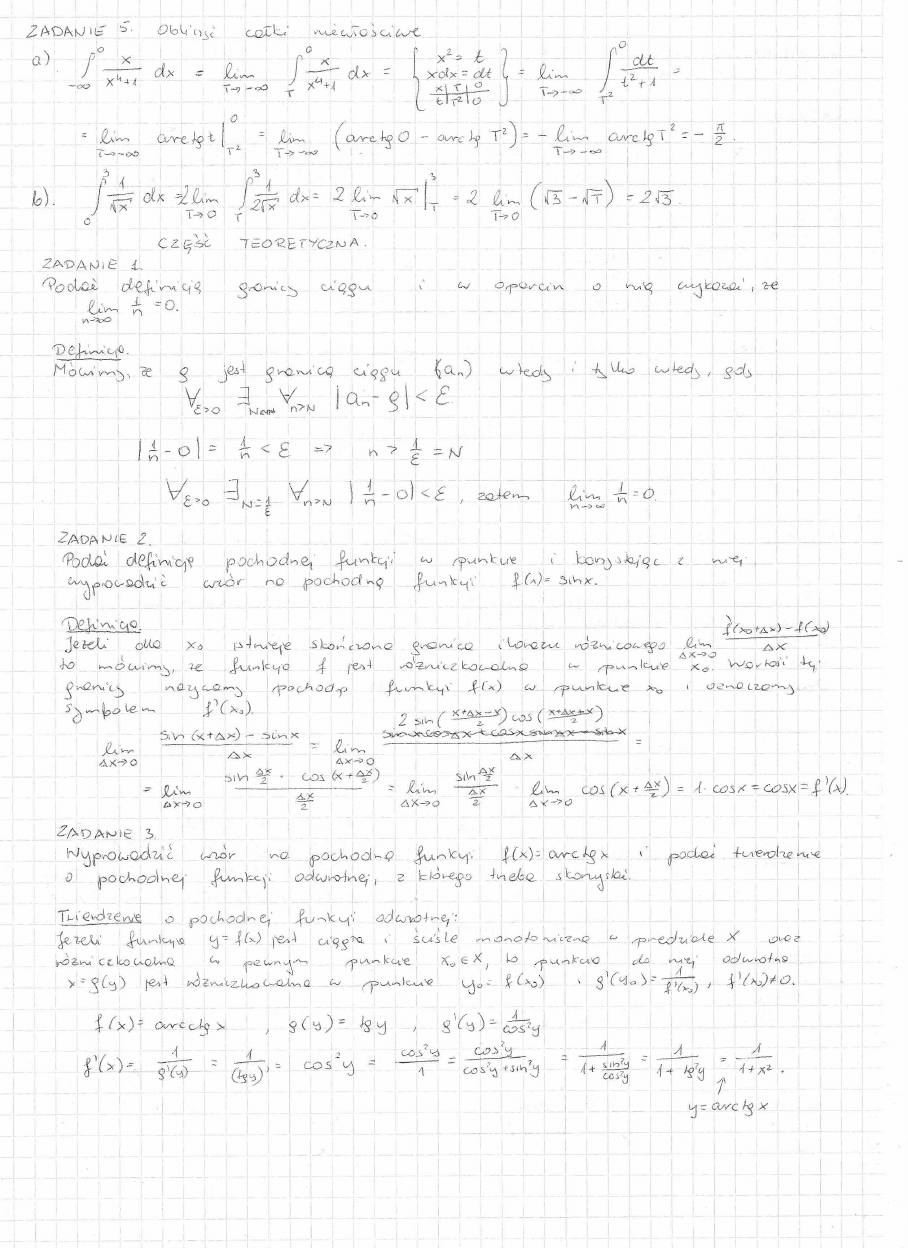 ZADANIE 5. Obliczyć całki niewłaściwe
a). ∫_{-∞}^{0} x/(x⁴+1) dx = lim_{T→-∞} ∫_{T}^{0} x/(x⁴+1) dx = { x² = t ; xdx = dt ; x|T|0 ; t|T²|0 } = lim_{T→-∞} ∫_{T²}^{0} dt/(t²+1) =
= lim_{T→-∞} arctg t |_{T²}^{0} = lim_{T→-∞} (arctg 0 - arctg T²) = - lim_{T→-∞} arctg T² = - π/2.
b). ∫_{0}^{3} 1/√x dx = 2 lim_{T→0} ∫_{T}^{3} 1/(2√x) dx = 2 lim_{T→0} √x |_{T}^{3} = 2 lim_{T→0} (√3 - √T) = 2√3.
CZĘŚĆ TEORETYCZNA.
ZADANIE 1.
Podać definicję granicy ciągu i w oparciu o nią wykazać, że
lim_{n→∞} 1/n = 0.
Definicja.
Mówimy, że g jest granicą ciągu (an) wtedy i tylko wtedy, gdy
∀_{ε>0} ∃_{N} ∀_{n>N} |an - g| < ε
|1/n - 0| = 1/n < ε => n > 1/ε = N
∀_{ε>0} ∃_{N=1/ε} ∀_{n>N} |1/n - 0| < ε, zatem lim_{n→∞} 1/n = 0.
ZADANIE 2.
Podać definicję pochodnej funkcji w punkcie i korzystając z niej
wyprowadzić wzór na pochodną funkcji f(x) = sinx.
Definicja.
Jeżeli dla x₀ istnieje skończona granica ilorazu różnicowego lim_{Δx→0} (f(x₀+Δx) - f(x₀))/Δx
to mówimy, że funkcja f jest różniczkowalna w punkcie x₀. Wartość tej
granicy nazywamy pochodną funkcji f(x) w punkcie x₀ i oznaczamy
symbolem f'(x₀).
lim_{Δx→0} (sin(x+Δx) - sinx)/Δx = lim_{Δx→0} (2 sin((x+Δx-x)/2) cos((x+Δx+x)/2))/Δx =
= lim_{Δx→0} (sin Δx/2 · cos(x+Δx/2))/(Δx/2) = lim_{Δx→0} (sin Δx/2)/(Δx/2) · lim_{Δx→0} cos(x+Δx/2) = 1·cosx = cosx = f'(x).
ZADANIE 3.
Wyprowadzić wzór na pochodną funkcji f(x) = arctg x i podać twierdzenie
o pochodnej funkcji odwrotnej, z którego trzeba skorzystać.
Twierdzenie o pochodnej funkcji odwrotnej:
Jeżeli funkcja y=f(x) jest ciągła i ściśle monotoniczna w przedziale X oraz
różniczkowalna w pewnym punkcie x₀∈X, to funkcja do niej odwrotna
x=g(y) jest różniczkowalna w punkcie y₀ = f(x₀) i g'(y₀) = 1/f'(x₀), f'(x₀)≠0.
f(x) = arcctg x , g(y) = tg y , g'(y) = 1/cos²y
f'(x) = 1/g'(y) = 1/(tgy)' = cos²y = cos²y/1 = cos²y/(cos²y+sin²y) = 1/(1+sin²y/cos²y) = 1/(1+tg²y) = 1/(1+x²).
↑
y = arctg x